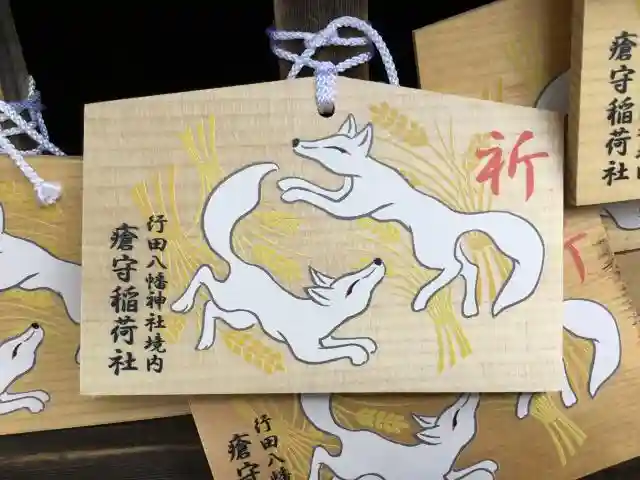 祈
行田八幡神社境内
瘡守稲荷社
瘡守稲荷社
祈
行田八幡
瘡守